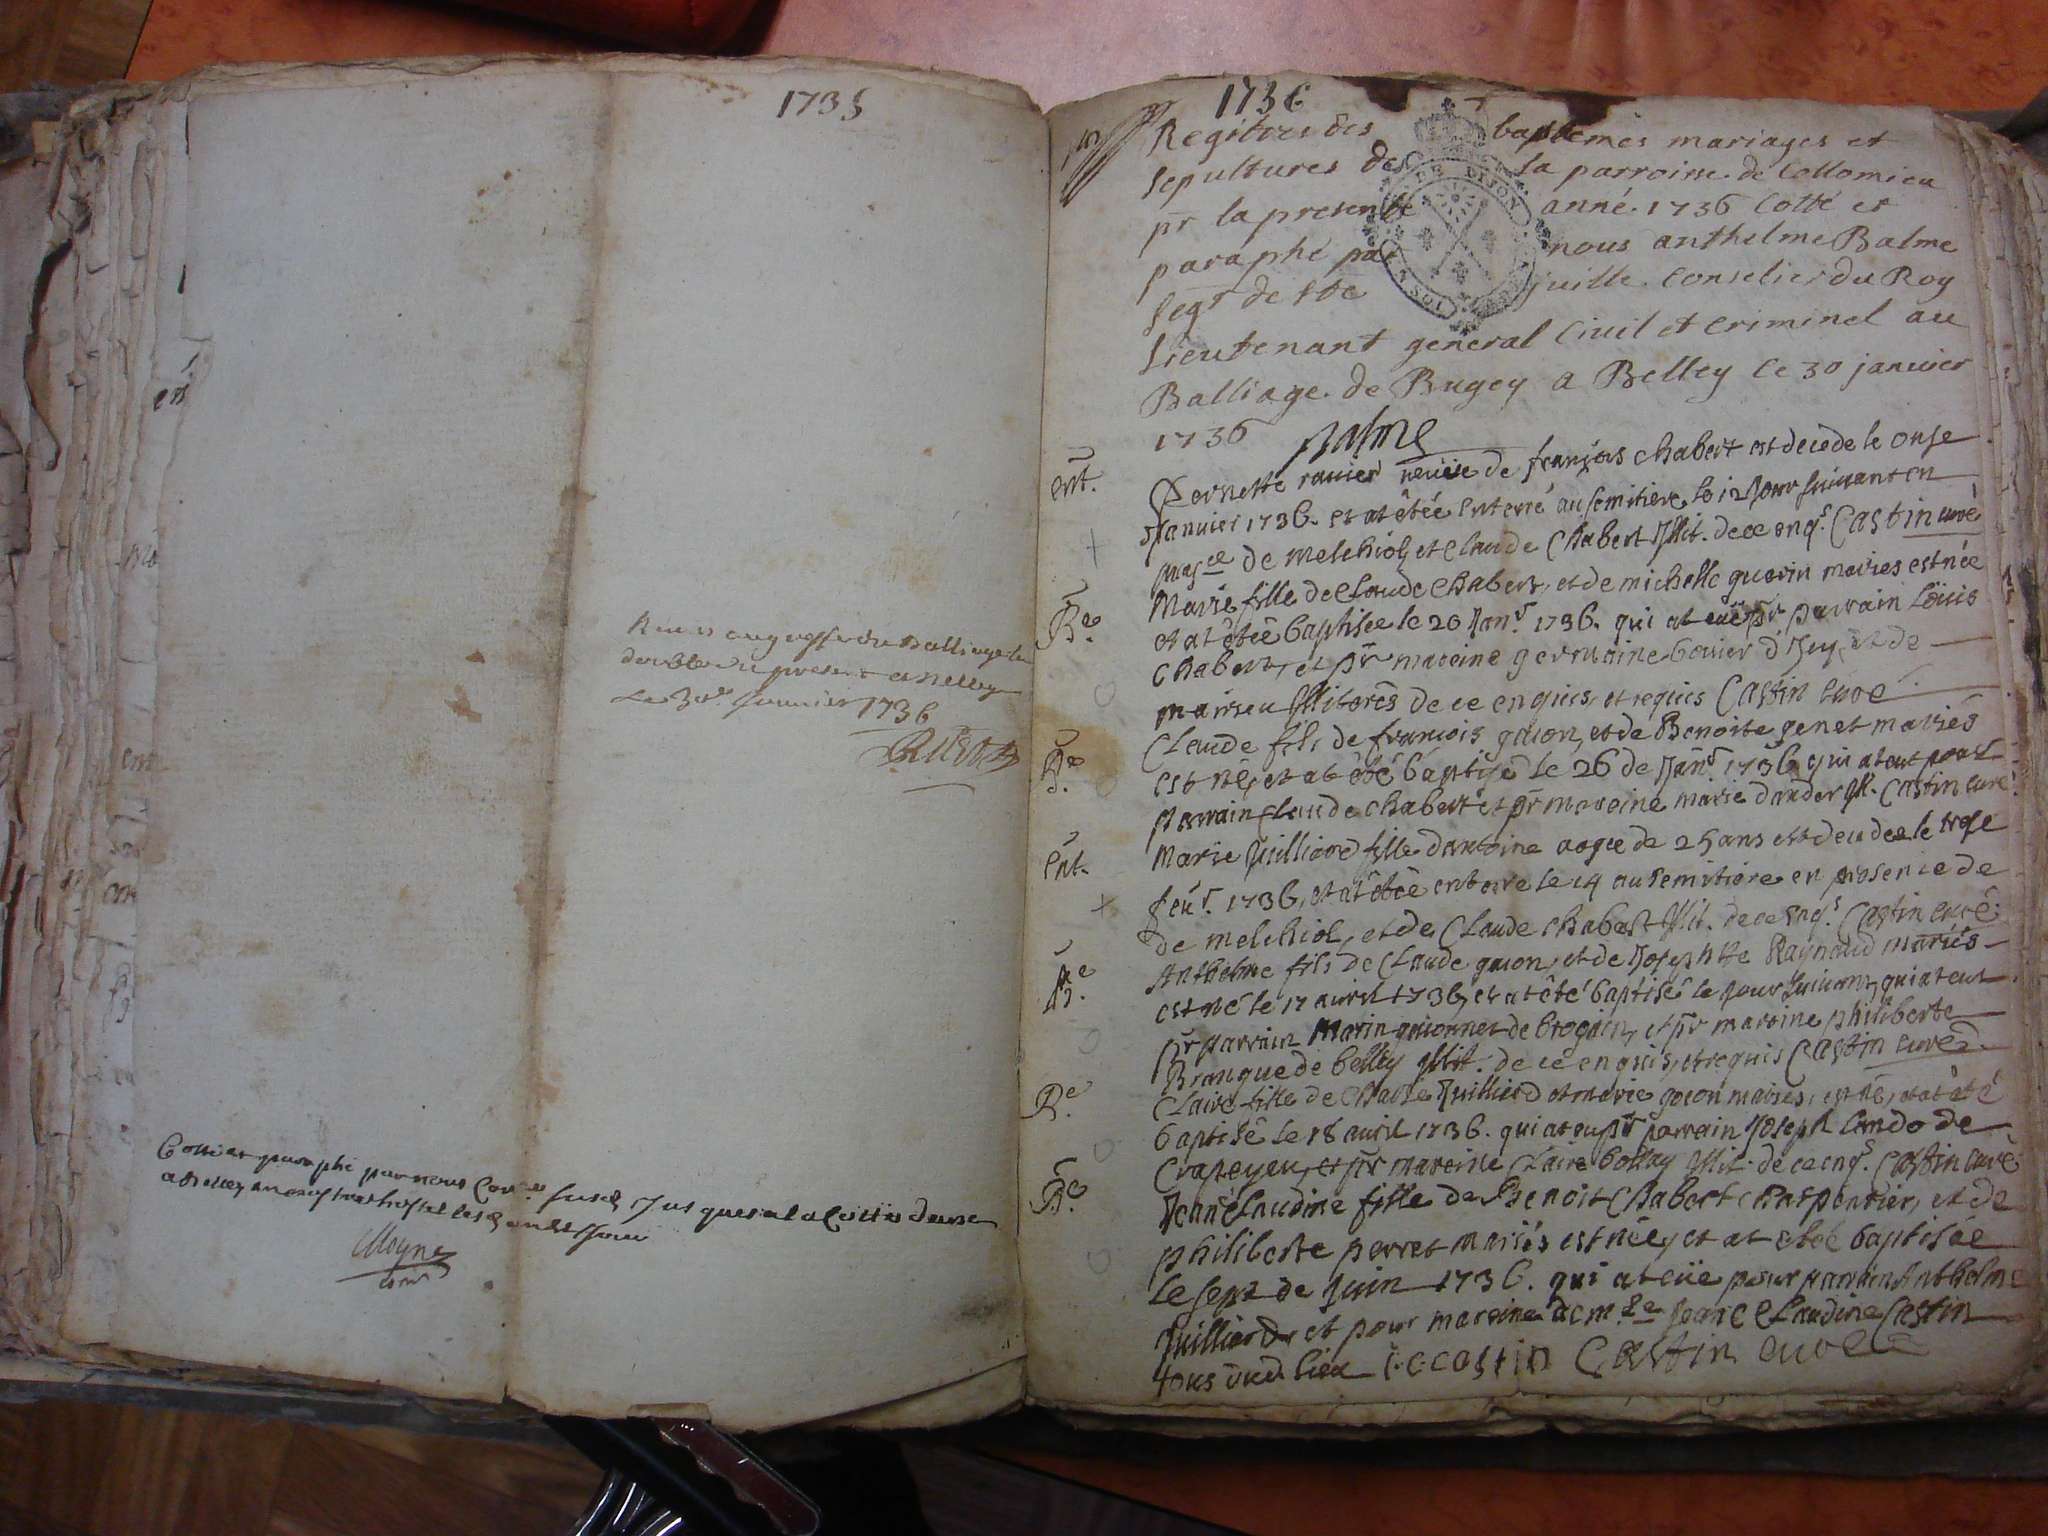 1735
Receu au greffe du Balliage le
double du present a Belley
Le 30e Janvier 1736
Cotté et paraphé par nous
a Belley
Moyne
1736
Regitres des baptemes mariages et
sepultures de la parroisse de Collomieu
pr la presente anné 1736 Cotté et
paraphé par nous anthelme Balme
segr de Ste juille Conselier du Roy
Lieutenant general Civil et Criminel au
Balliage de Bugey a Belley le 30 janvier
1736 Balme
ent.
Pernette ravier veuve de françois Chabert est decede le onse
Janvier 1736. et at étéé enterré au semitiere le 12 Jour suivant en
de Melchiol, et Claude Chabert Illit. de ce enqs. Castin curé
Be.
Marie fille de Claude Chabert, et de michelle guerin mariés est née
et at étéé baptisée le 20 Janr. 1736. qui at eüe pr parrain Loüis
Chabert, et pr mareine germaine bovier d'
Illiterés de ce enquis, et requis Castin curé
Be.
Claude fils de francois guion, et de Benoite genet mariés
est né, et at été baptisé le 26 de Janr. 1736 qui at eut pour
parrain Claude Chabert et pr mareine marie dander Ill. Castin curé
ent.
Marie Juilliard fille dantoine aagée de 25 ans est decedee le trese
feur. 1736, et at étéé enterre le 14 au semitiere en presence de
de melchiol, et de Claude Chabert Illit. de ce enqs. Castin curé
Be.
Anthelme fils de Claude guion, et de Josephte Raynaud mariés
est né le 17 avril 1736, et at été baptisé le jour suivant, qui at eut
pr parrain Marin guionnet de brognin, et pr mareine philiberte
Branque de belley Illit. de ce enquis, et requis Castin curé
Be.
Claire fille de Juilliard et marie guion mariés, est né, et at été
baptisé le 18 avril 1736. qui at eu pr parrain Joseph Cando de
Crapeyeu, et pr mareine Claire Illit. de ce enq. Castin curé
Be.
Jeanne Claudine fille de Benoit Chabert Charpentier, et de
philiberte perret mariés est née, et at étéé baptisée
le sept de Juin 1736. qui at eüe pour parrain Anthelme
Juilliard, et pour mareine demlle Jeanne Claudine Castin
tous dud. lieu J.C. Castin Castin curé